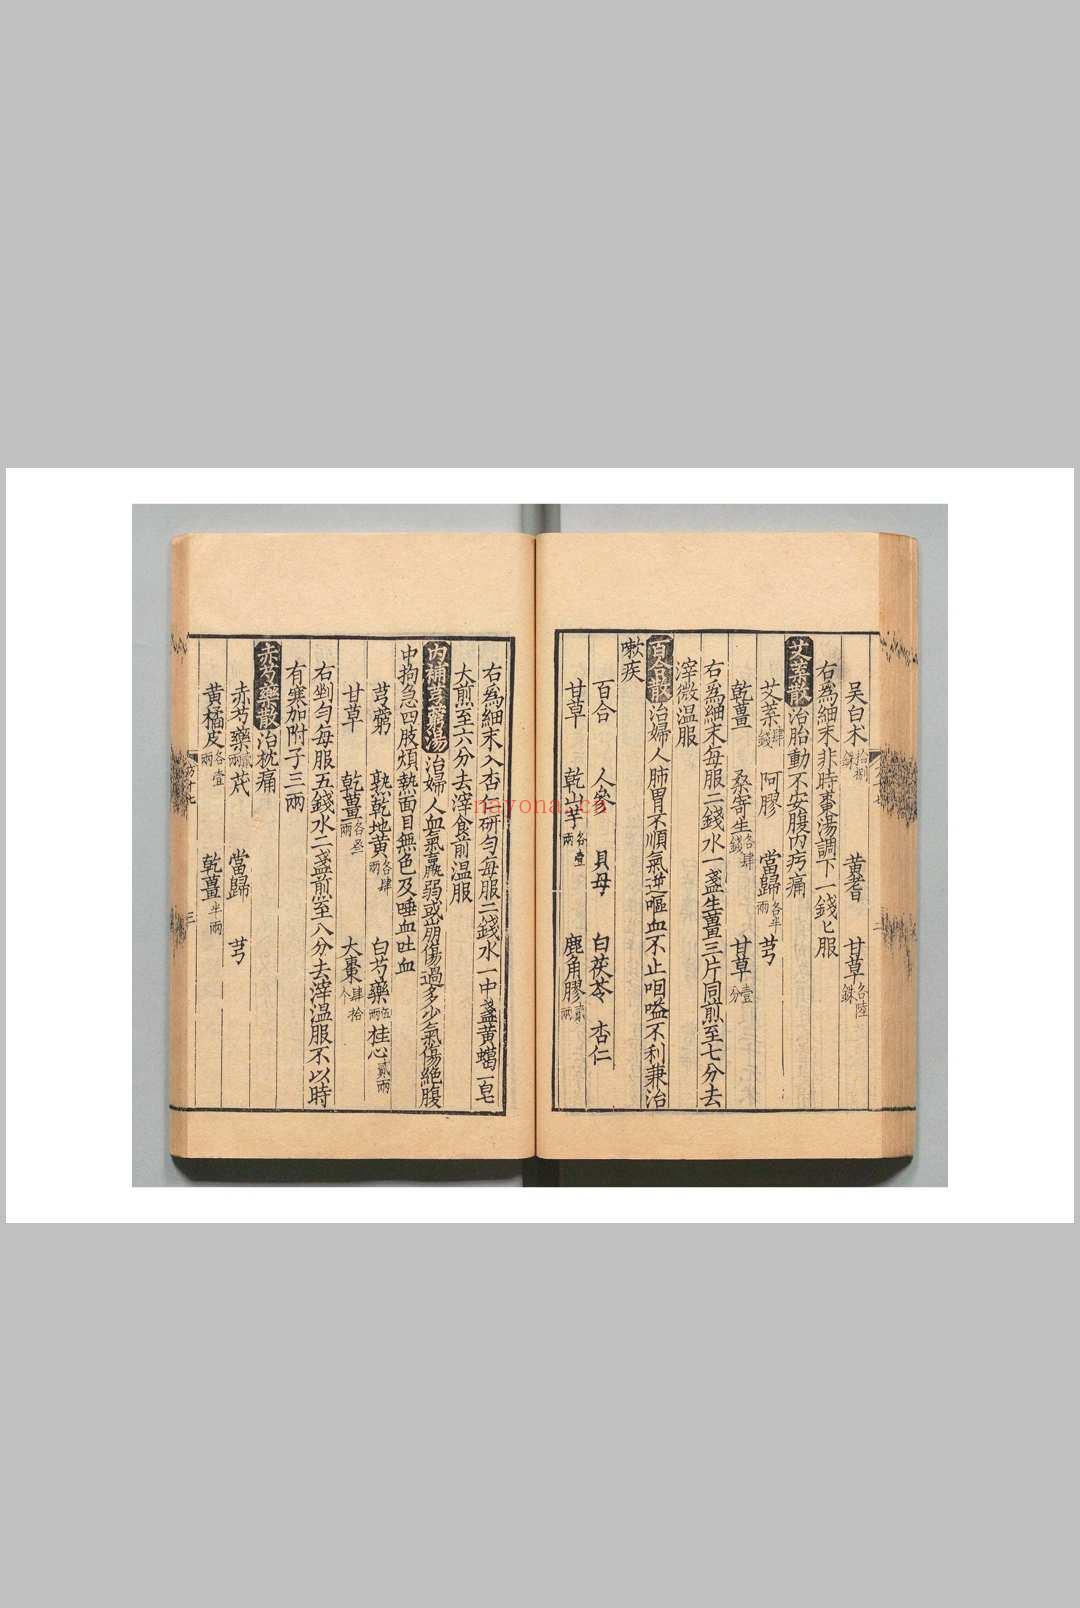 吴白术拾捌銖 黄耆 甘草各陸銖
右為細末非時棗湯調下一錢匕服
艾葉散治胎動不安腹内疞痛
艾葉肆錢 阿膠 當歸各半兩 芎
乾薑 桑寄生各肆錢 甘草壹分
右為細末每服二錢水一盞生薑三片同煎至七分去
滓微温服
百合散治婦人肺胃不順氣逆嘔血不止咽嗌不利兼治
嗽疾
百合 人參 貝母 白茯苓 杏仁
甘草 乾山芋各壹兩 鹿角膠貳兩
右為細末入杏仁研勻每服二錢水一中盞黄蠟一皂
大煎至六分去滓食前温服
内補芎藭湯治婦人血氣羸弱或崩傷過多少氣傷絶腹
中拘急四肢煩熱面目無色及唾血吐血
芎藭 熟乾地黄各肆兩 白芍藥伍兩 桂心貳兩
甘草 乾薑各叁兩 大棗肆拾个
右剉勻每服五錢水二盞煎至八分去滓温服不以時
有寒加附子三兩
赤芍藥散治枕痛
赤芍藥貳兩 芪 當歸 芎
黄橘皮各壹兩 乾薑半兩
方十七
三
nayona.cn